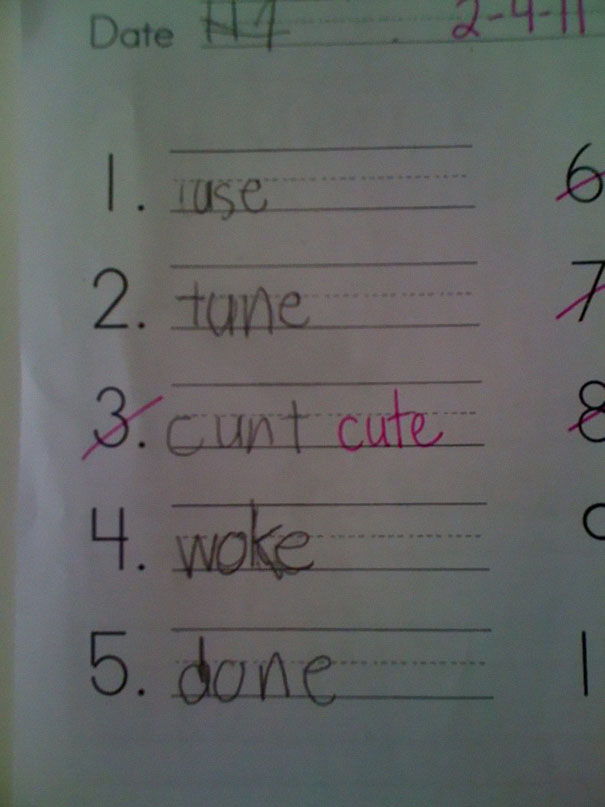 Date 2-4-11
1. use 6
2. tune 7
3. cunt cute 8
4. woke
5. done 1